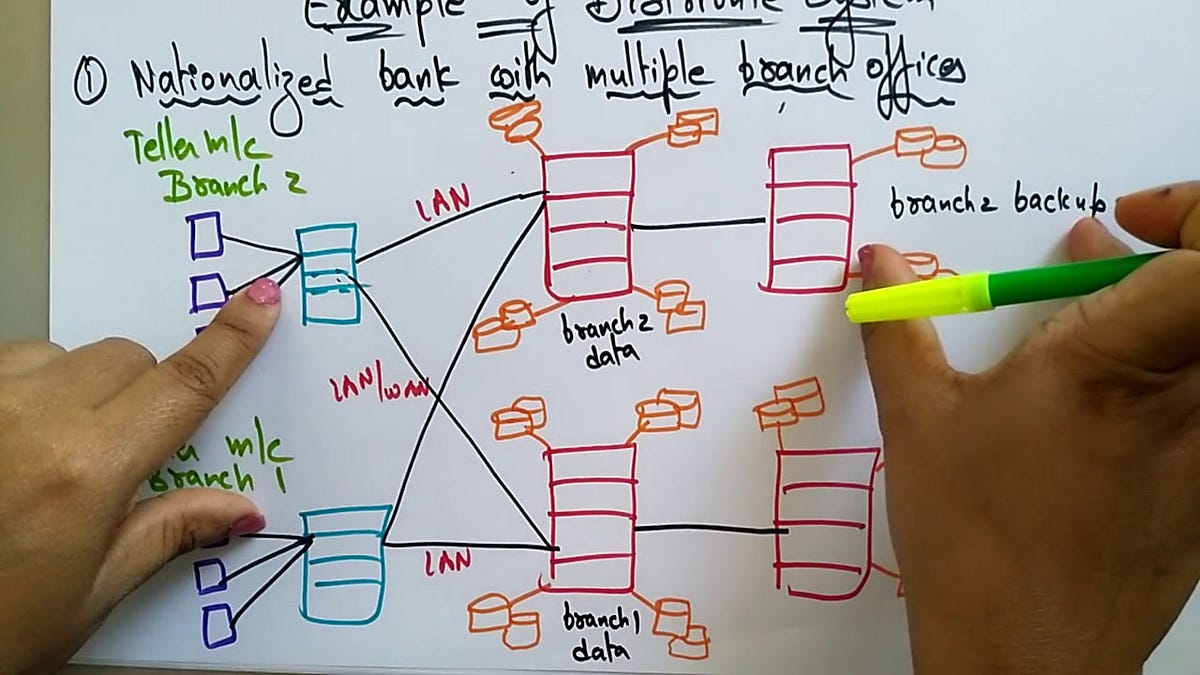 Example of Distribute System
① Nationalized bank with multiple branch offices
Teller m/c
Branch 2
LAN
branch 2 backup
branch 2
data
LAN/WAN
m/c
Branch 1
LAN
branch 1
data